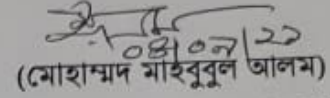 ০৪।০৯।২২
(মোহাম্মদ মাহবুবুল আলম)